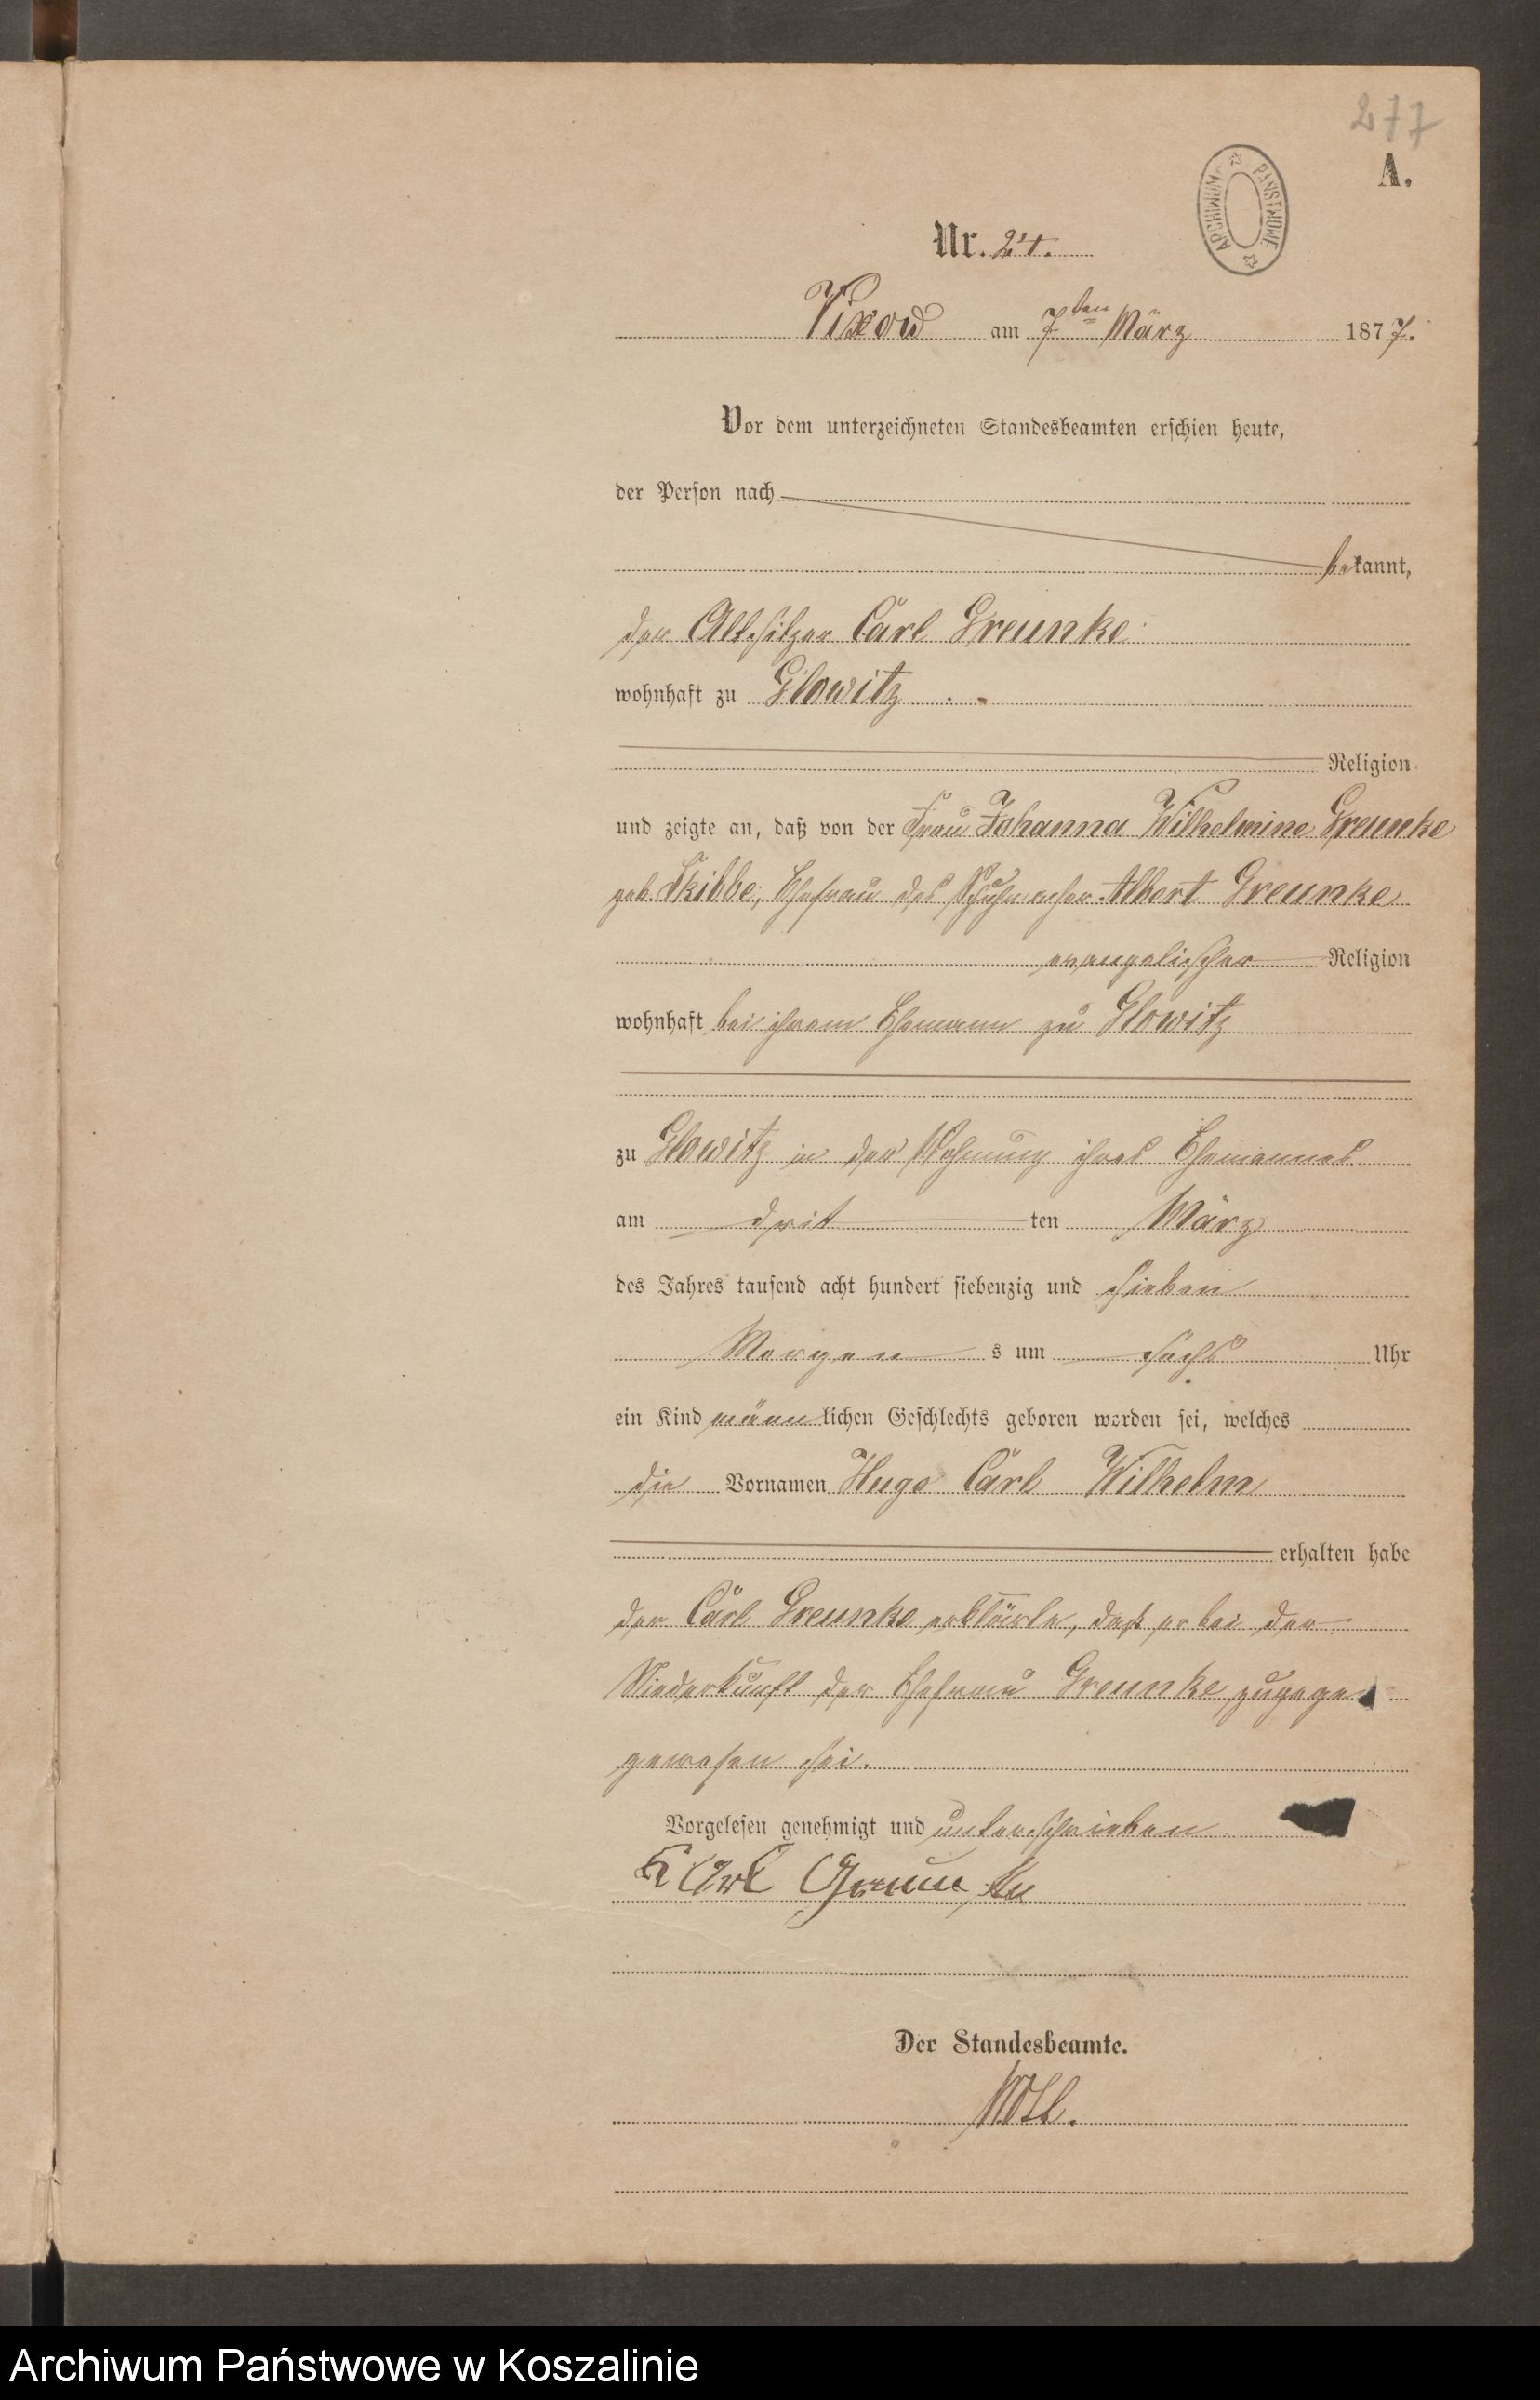 277
A.
ARCHIWUM PAŃSTWOWE
Nr. 24.
Vixow am 7ten März 1877.
Vor dem unterzeichneten Standesbeamten erschien heute,
der Person nach
bekannt,
der Altsitzer Carl Greunke
wohnhaft zu Glowitz
Religion
und zeigte an, daß von der Frau Johanna Wilhelmine Greunke
geb. Skibbe, Ehefrau des Schuhmacher Albert Greunke
evangelischer Religion
wohnhaft bei ihrem Ehemann zu Glowitz
zu Glowitz in der Wohnung ihres Ehemannes
am drit ten März
des Jahres tausend acht hundert siebenzig und sieben
Morgen s um sechs Uhr
ein Kind männlichen Geschlechts geboren worden sei, welches
die Vornamen Hugo Carl Wilhelm
erhalten habe
der Carl Greunke erklärte, daß er bei der
Niederkunft der Ehefrau Greunke zugegen
gewesen sei.
Vorgelesen genehmigt und unterschrieben
Karl Greunke
Der Standesbeamte.
Archiwum Państwowe w Koszalinie